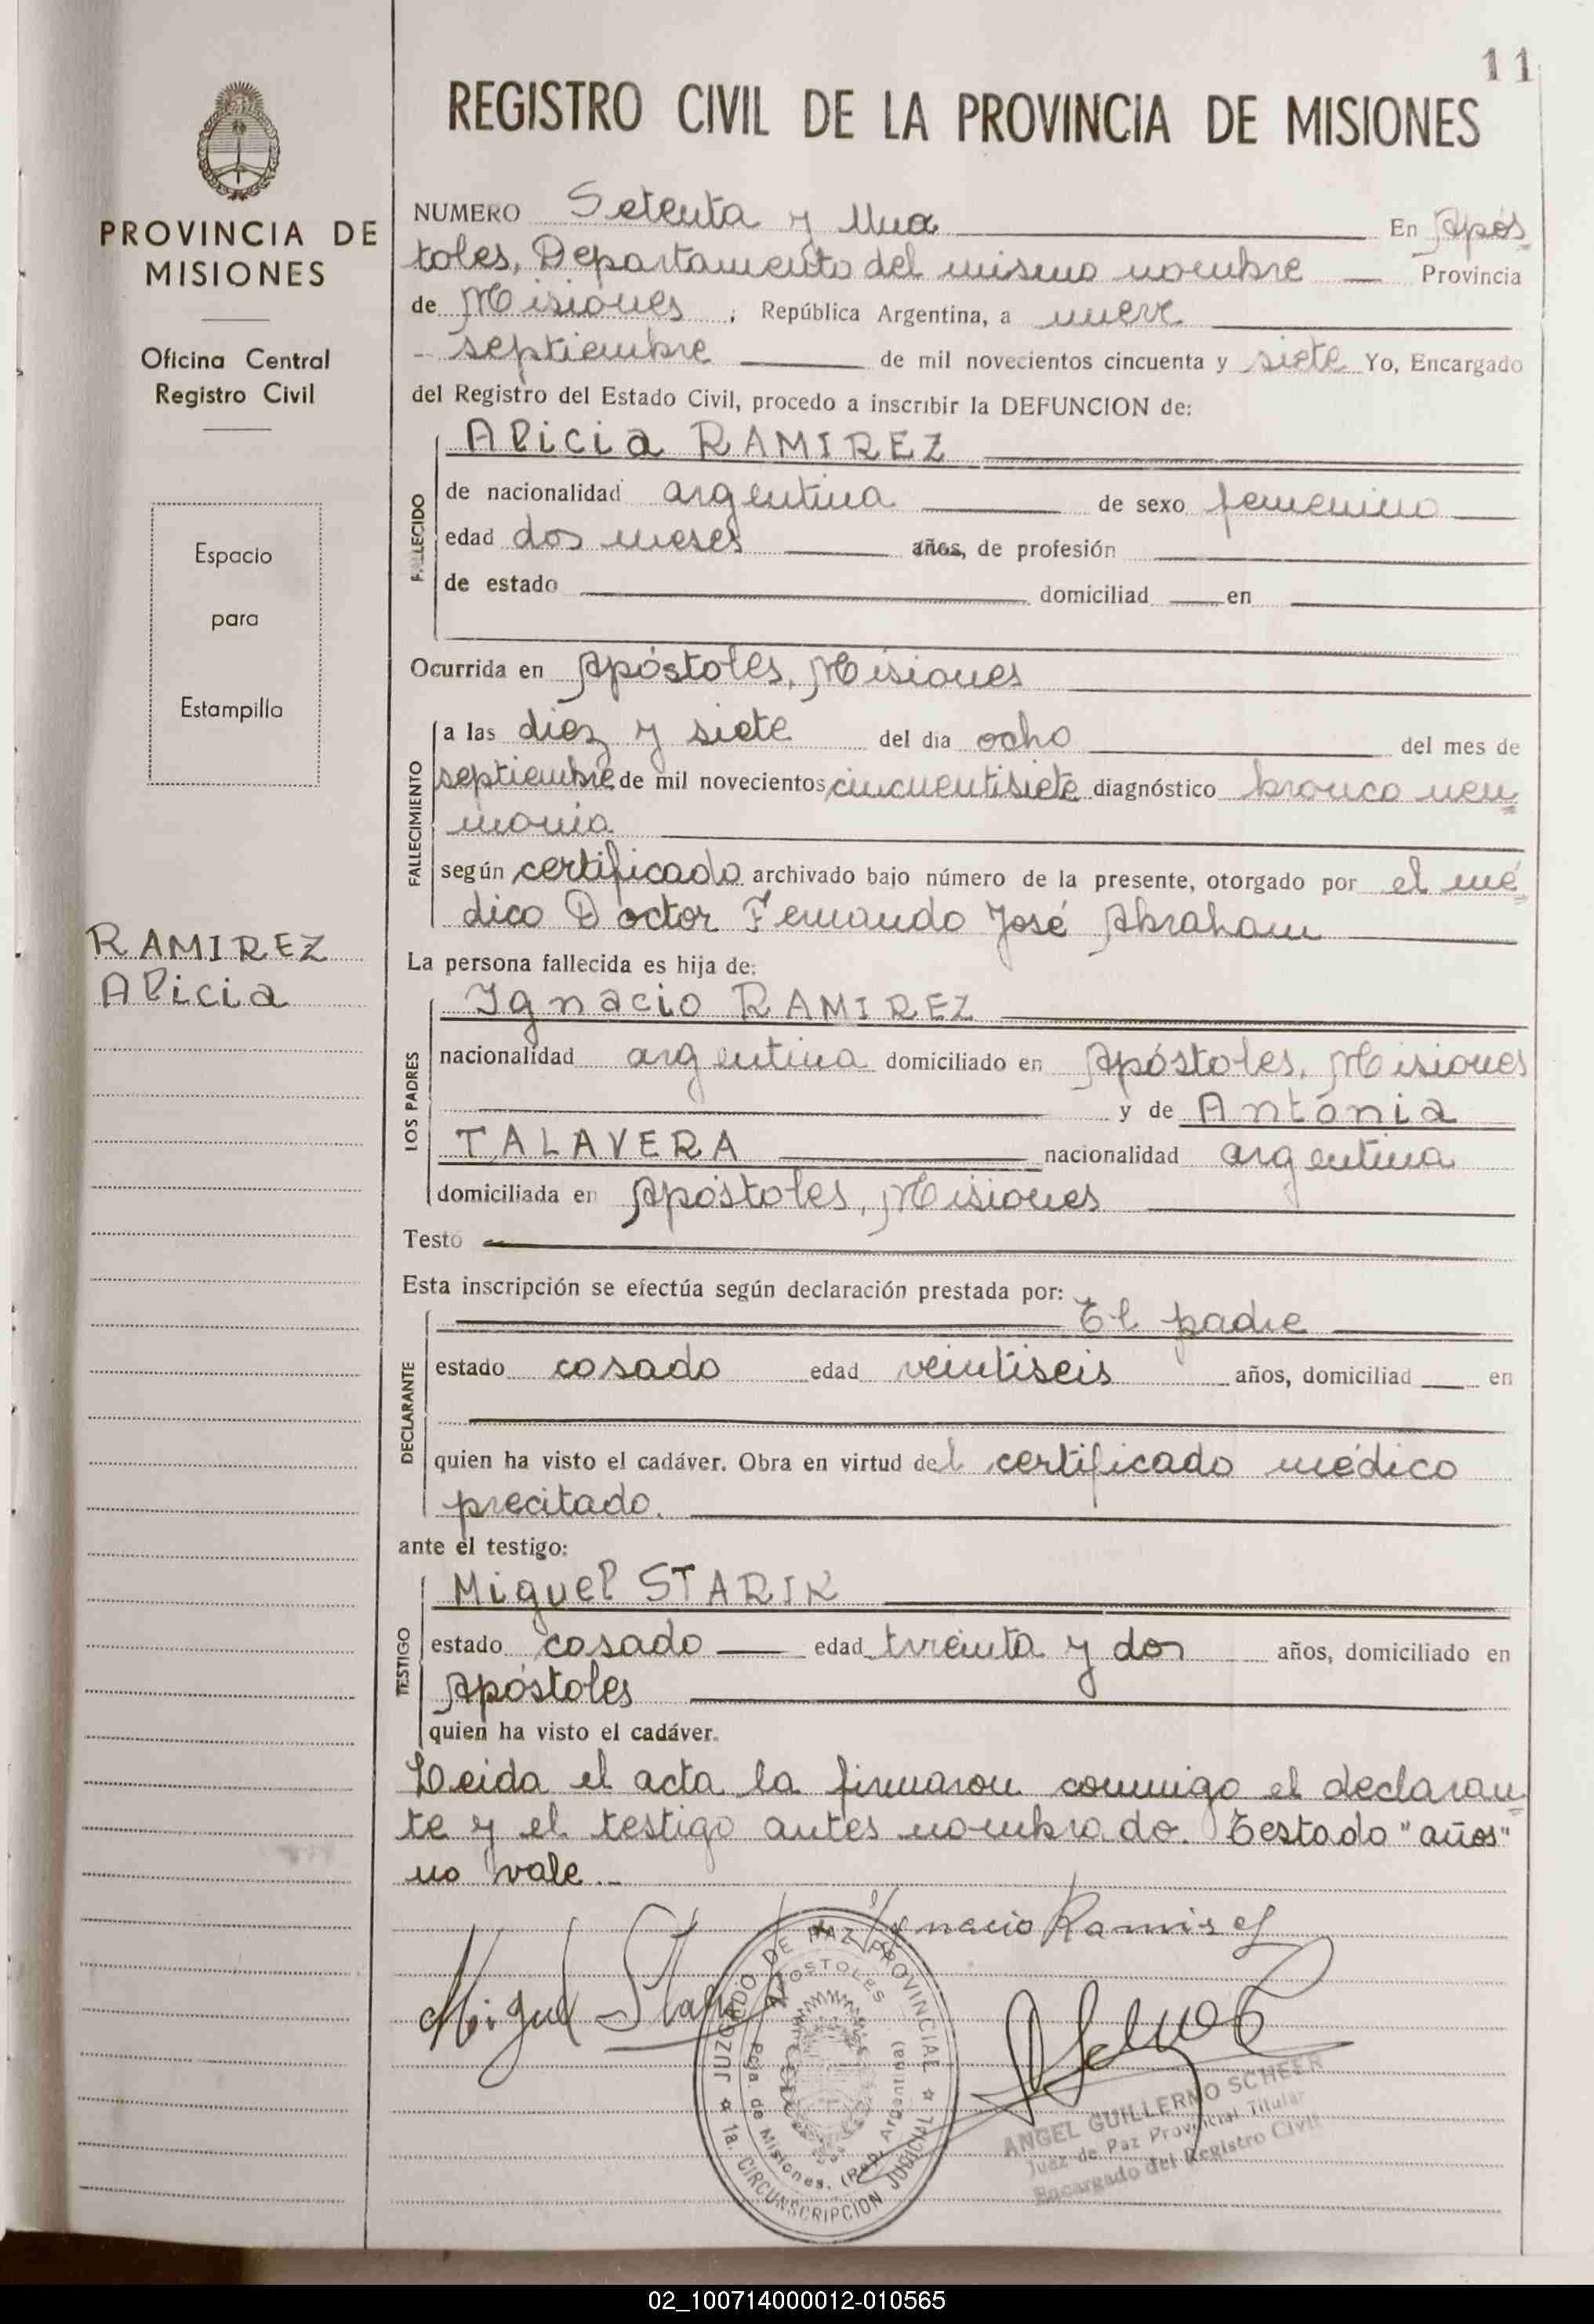 11
REGISTRO CIVIL DE LA PROVINCIA DE MISIONES
PROVINCIA DE
MISIONES
Oficina Central
Registro Civil
Espacio
para
Estampilla
RAMIREZ
Alicia
NUMERO Setenta y Una En Após
toles, Departamento del mismo nombre Provincia
de Misiones, República Argentina, a nueve
septiembre de mil novecientos cincuenta y siete Yo, Encargado
del Registro del Estado Civil, procedo a inscribir la DEFUNCION de:
FALLECIDO
Alicia RAMIREZ
de nacionalidad argentina de sexo femenino
edad dos meses años, de profesión
de estado domiciliad en
Ocurrida en Apóstoles, Misiones
FALLECIMIENTO
a las diez y siete del dia ocho del mes de
septiembre de mil novecientos cincuentisiete diagnóstico bronco neu
monia
según certificado archivado bajo número de la presente, otorgado por el mé
dico Doctor Fernando José Abraham
La persona fallecida es hija de:
LOS PADRES
Ignacio RAMIREZ
nacionalidad argentina domiciliado en Apóstoles, Misiones
y de Antonia
TALAVERA nacionalidad argentina
domiciliada en Apóstoles, Misiones
Testo
Esta inscripción se efectúa según declaración prestada por:
DECLARANTE
El padre
estado casado edad veintiseis años, domiciliad en
quien ha visto el cadáver. Obra en virtud del certificado médico
precitado.
ante el testigo:
TESTIGO
Miguel STARIK
estado casado edad treinta y dos años, domiciliado en
Apóstoles
quien ha visto el cadáver.
Leida el acta la firmaron conmigo el declaran
te y el testigo antes nombrado. Testado "años"
no vale.-
Ignacio Ramirez
Miguel Starik
JUZGADO DE PAZ PROVINCIAL
APOSTOLES
Pcia. de Misiones. (Rep. Argentina)
1a. CIRCUNSCRIPCION JUDICIAL
ANGEL GUILLERMO SCHEER
Juez de Paz Provincial Titular
Encargado del Registro Civil
02_100714000012-010565